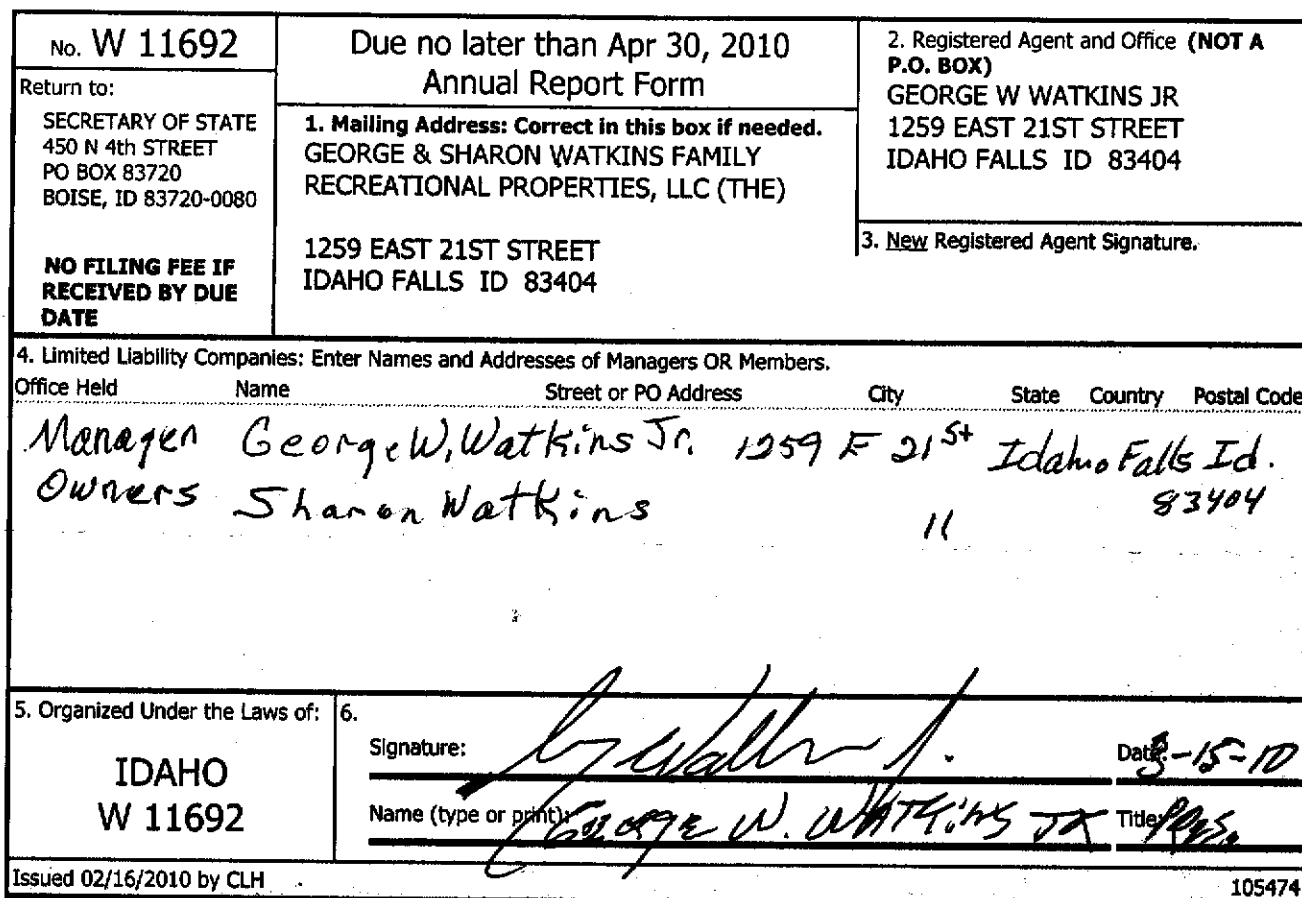 No. W 11692
Return to:
SECRETARY OF STATE
450 N 4th STREET
PO BOX 83720
BOISE, ID 83720-0080
NO FILING FEE IF
RECEIVED BY DUE
DATE
Due no later than Apr 30, 2010
Annual Report Form
1. Mailing Address: Correct in this box if needed.
GEORGE & SHARON WATKINS FAMILY
RECREATIONAL PROPERTIES, LLC (THE)
1259 EAST 21ST STREET
IDAHO FALLS ID 83404
2. Registered Agent and Office (NOT A
P.O. BOX)
GEORGE W WATKINS JR
1259 EAST 21ST STREET
IDAHO FALLS ID 83404
3. New Registered Agent Signature.
4. Limited Liability Companies: Enter Names and Addresses of Managers OR Members.
Office Held Name Street or PO Address City State Country Postal Code
Manager George W. Watkins Jr. 1259 E 21st Idaho Falls Id.
83404
Owners Sharon Watkins 11
5. Organized Under the Laws of:
IDAHO
W 11692
6.
Signature: Date: 3-15-10
Name (type or print): George W. WATKINS JR Title: Pres.
Issued 02/16/2010 by CLH
105474